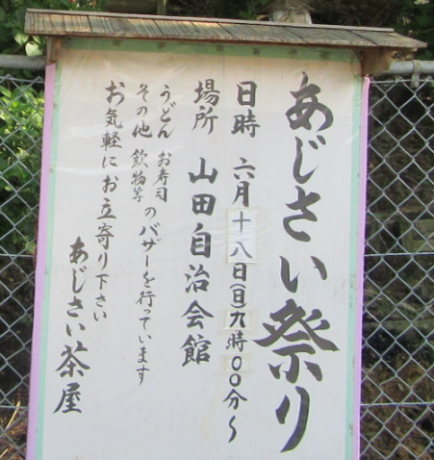 あじさい祭り
日時 六月十八日(日)九時００分～
場所 山田自治会館
うどん お寿司
その他 飲物等 のバザーを行っています
お気軽にお立寄り下さい
あじさい茶屋